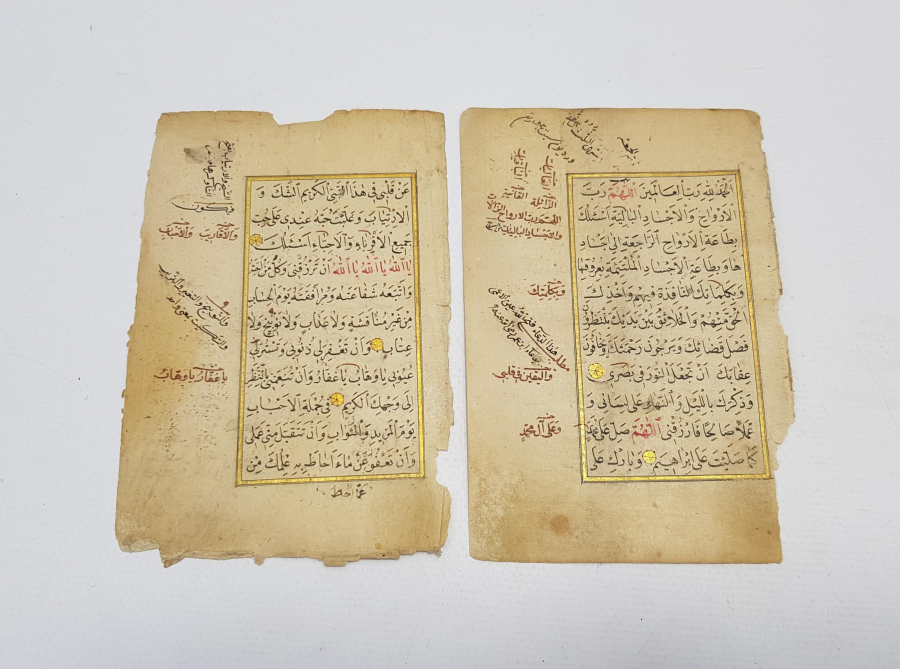 الحمد لله رب العالمين اللهم رب
الارواح والاجساد البالية اسئلك
بطاعة الارواح الراجعة الى اجساد
ها وبطاعة الاجساد الملتئمة بعروقها
وبكلماتك النافذة فيهم واخذك
الحق منهم والخلائق بين يديك ينتظرون
فصل قضائك ويرجون رحمتك ويخافون
عقابك ان تجعل النور في بصري
وذكرك بالليل والنهار على لساني و
عملا صالحا فارزقني اللهم صل على محمد
كما صليت على ابراهيم وبارك على
وبكلمتك
واليقين في قلبي
وعلى آل محمد
عن قلبي في هذا النبي الكريم الشك و
الارتياب وغلب حبه عندي على حب
جميع الاقرباء والاحباء اسئلك
يا الله يا الله يا الله ان ترزقني وكل من احبه
واتبعه شفاعته ومرافقته يوم الحساب
من غير مناقشة ولا عذاب ولا توبيخ ولا
عتاب وان تغفر لي ذنوبي وتستر لي
عيوبي يا وهاب يا غفار وان تنعمني بالنظر
الى وجهك الكريم في جملة الاحباب
يوم المزيد والثواب وان تتقبل مني عملي
وان تعفو عن ما احاط به علمك من
والاقارب والاحباب
يا غفار يا وهاب